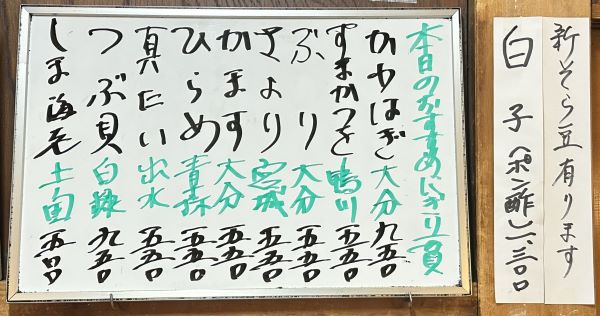 新そら豆有ります
白子(ポン酢)一、三〇〇
本日のおすすめにぎり一貫
かわはぎ 大分 九五〇
すまかつを 鴨川 五五〇
ぶり 大分 五五〇
さより 宮城 五五〇
かます 大分 五五〇
ひらめ 青森 五五〇
真だい 出水 五五〇
つぶ貝 白糠 九五〇
しま海老